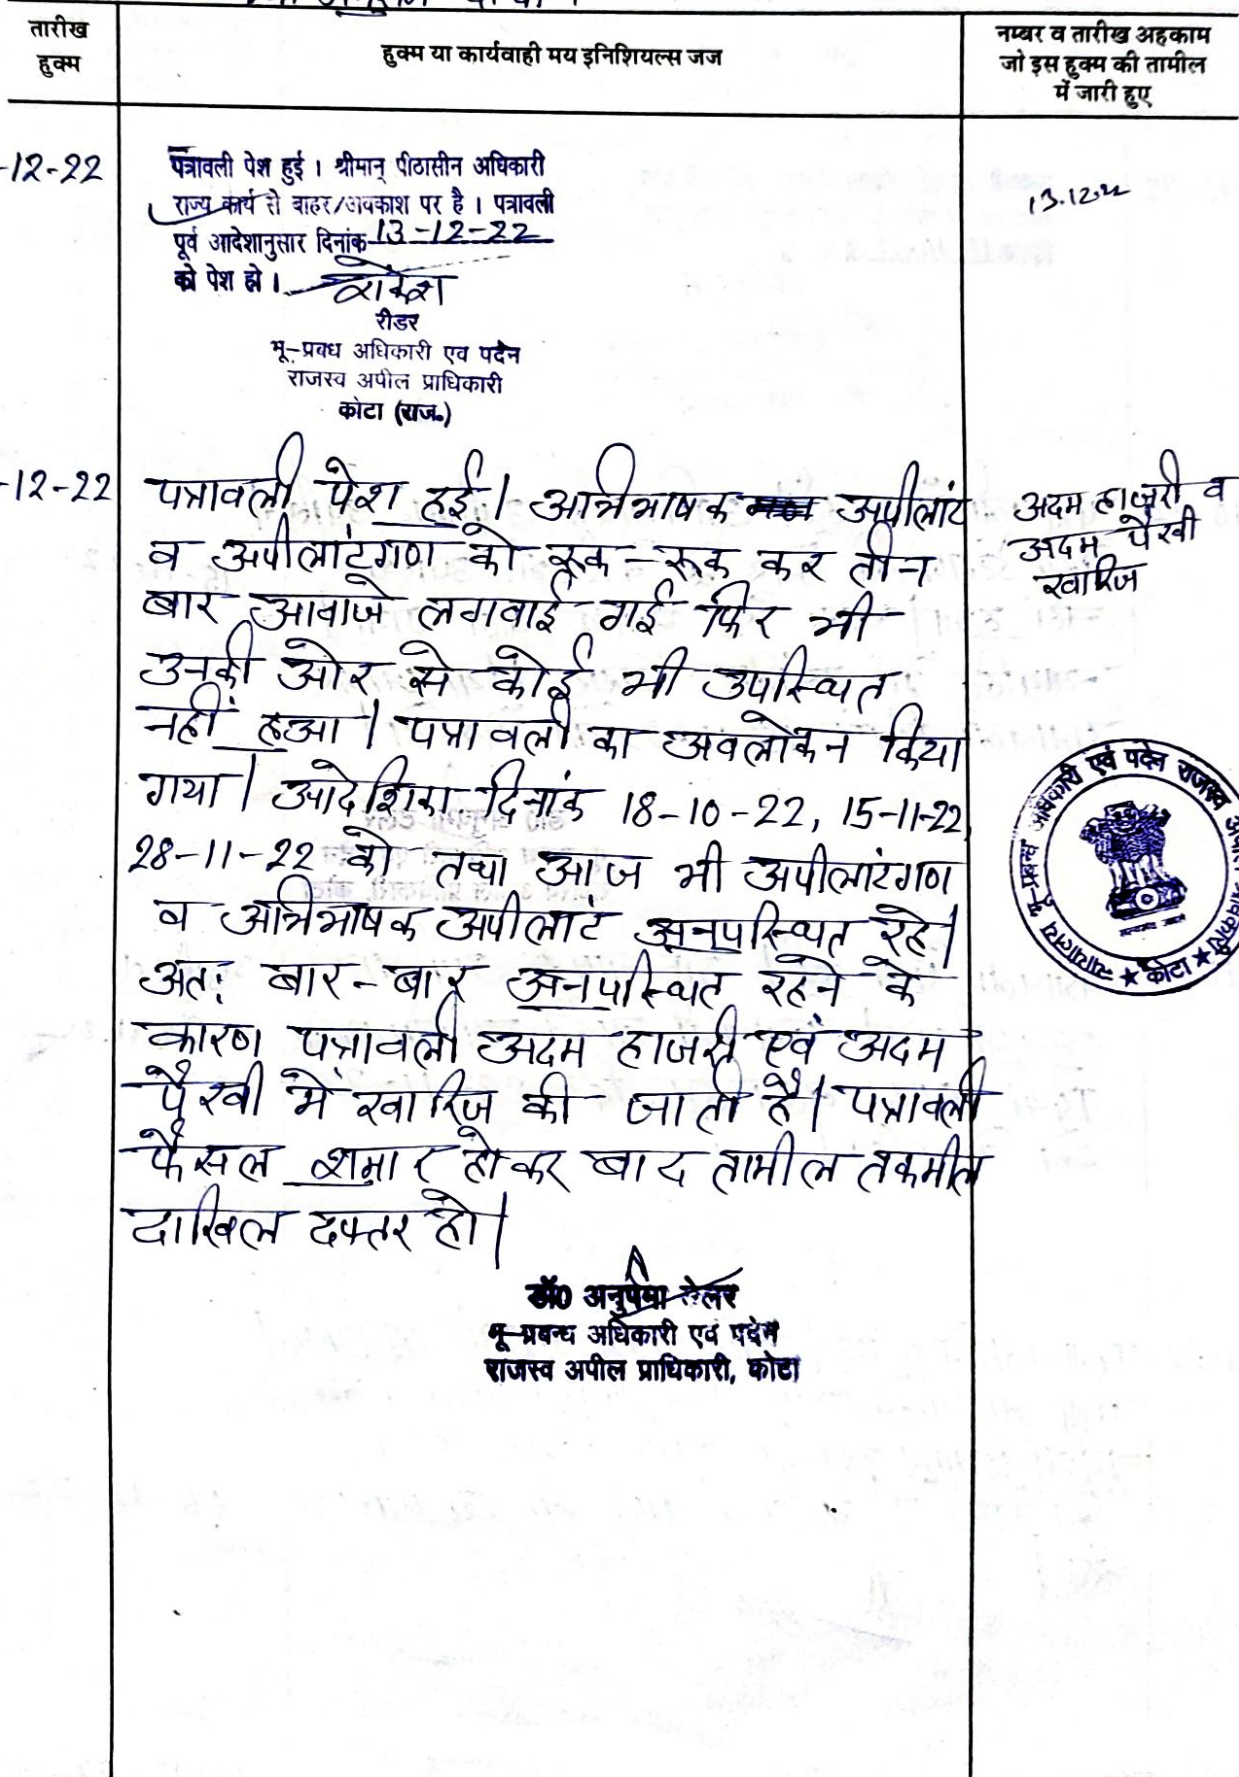 तारीख
हुक्म
हुक्म या कार्यवाही मय इनिशियल्स जज
नम्बर व तारीख अहकाम
जो इस हुक्म की तामील
में जारी हुए
-12-22
पत्रावली पेश हुई । श्रीमान् पीठासीन अधिकारी
राज्य कार्य से बाहर/अवकाश पर है । पत्रावली
पूर्व आदेशानुसार दिनांक 13-12-22
को पेश हो ।
राकेश
रीडर
भू-प्रबध अधिकारी एव पदेन
राजस्व अपील प्राधिकारी
कोटा (राज.)
13.12.22
-12-22
पत्रावली पेश हुई । अभिभाषक अपीलांट
व अपीलांटगण को रूक-रूक कर तीन
बार आवाजे लगवाई गई फिर भी
उनकी ओर से कोई भी उपस्थित
नहीं हुआ । पत्रावली का अवलोकन किया
गया । आदेशिका दिनांक 18-10-22, 15-11-22,
28-11-22 को तथा आज भी अपीलांटगण
व अभिभाषक अपीलांट अनुपस्थित रहे ।
अत: बार-बार अनुपस्थित रहने के
कारण पत्रावली अदम हाजरी एवं अदम
पैरवी में खारिज की जाती है । पत्रावली
फैसल शुमार होकर बाद तामील तकमील
दाखिल दफ्तर हो ।
अदम हाजरी व
अदम पैरवी
खारिज
न्यायालय भू-प्रबन्ध अधिकारी एवं पदेन राजस्व अपील
★ कोटा ★
डॉ0 अनुपमा टेलर
भू-प्रबन्ध अधिकारी एवं पदेन
राजस्व अपील प्राधिकारी, कोटा